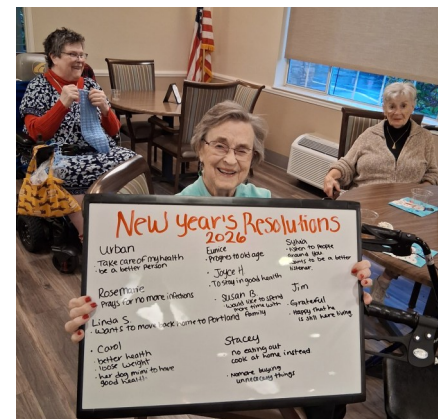 New Year's Resolutions
2026
Urban
Take care of my health
• be a better person
Rosemarie
Prays for no more infections
Linda S.
• Wants to move back home to Portland
• Carol
better health
• loose weight
• her dog mimi to have
good health
Eunice
Progress to old age
• Joyce H
To stay in good health
• Susan B
would like to spend
more time with
family
Stacey
no eating out
cook at home instead
• No more buying
unnecessary things
Sylvia
• listen to people
around you
wants to be a better
listener
Jim
Grateful
Happy that he
is still here living